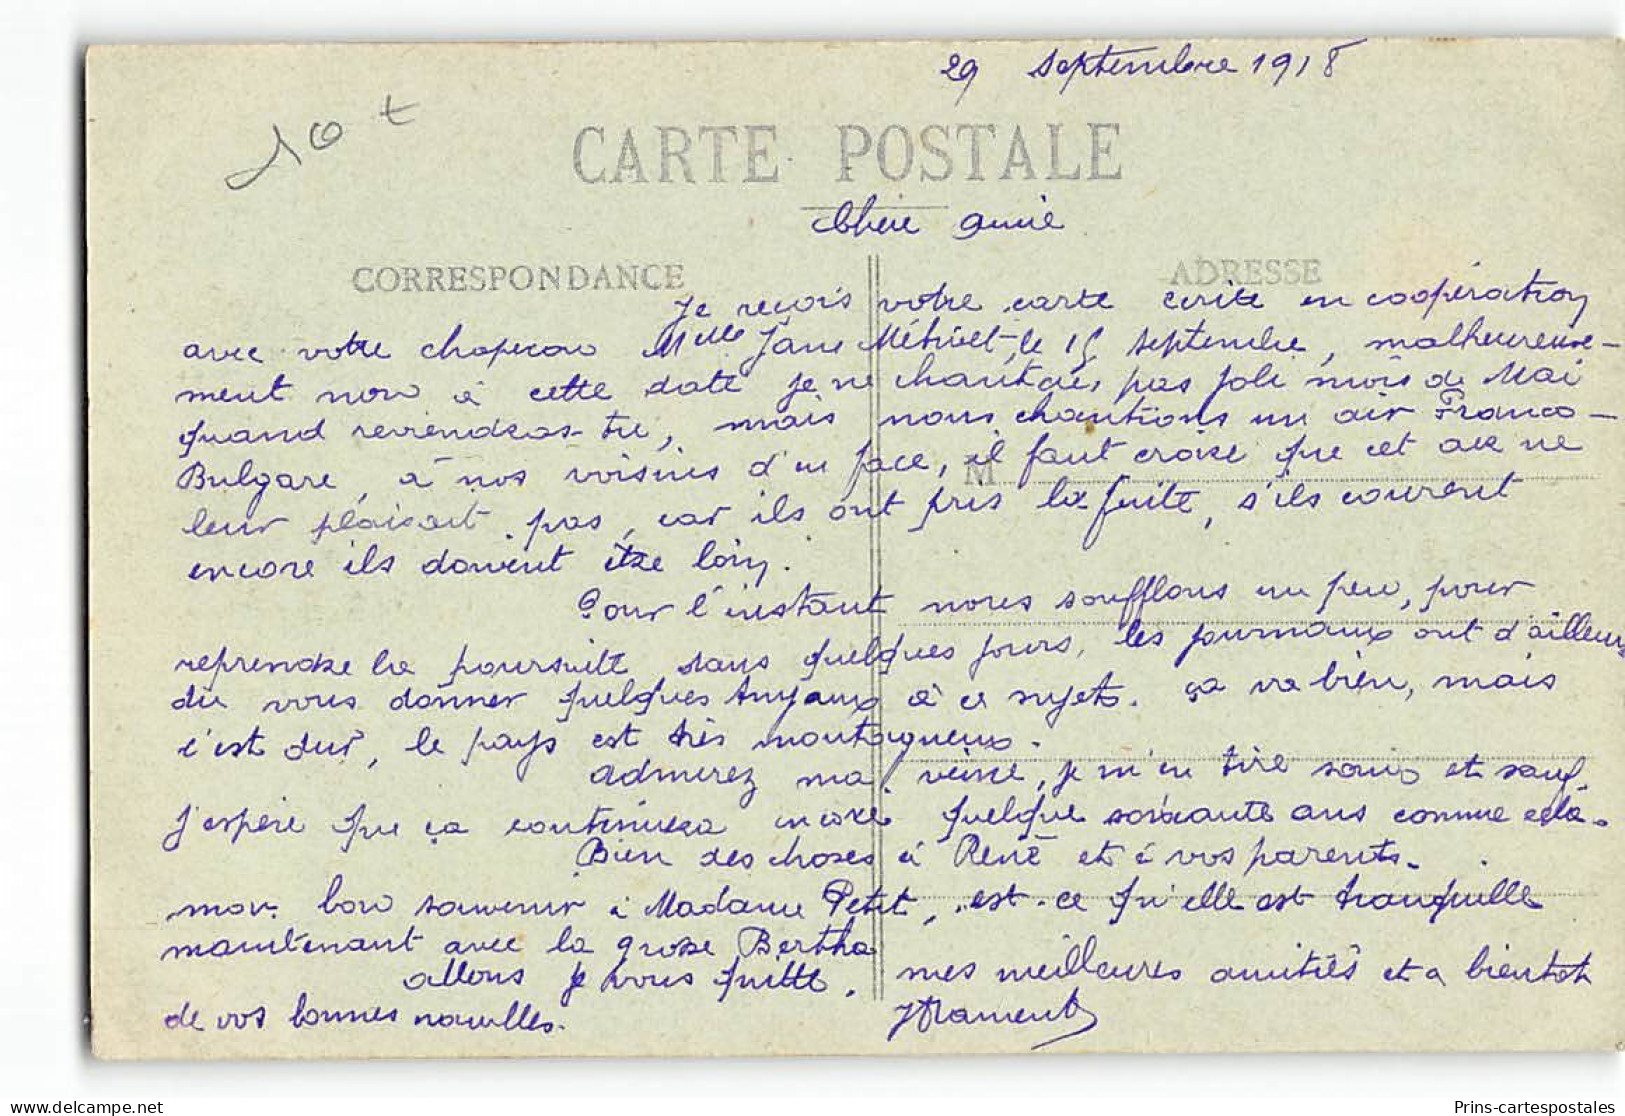 29 septembre 1918
10 t
CARTE POSTALE
Chère amie
CORRESPONDANCE
ADRESSE
Je reçois votre carte ecrite en coopération
avec votre chaperon Mlle Jane le 15 septembre, malheureuse-
ment non à cette date je ne chantais, pas joli mois de Mai
quand reviendras-tu, mais nous chantions un air Franco-
Bulgare, à nos voisins d'en face, il faut croire que cet air ne
M
leur plaisait pas, car ils ont pris la fuite, s'ils courent
encore ils doivent être loin.
Pour l'instant nous soufflons un peu, pour
reprendre la poursuite dans quelques jours, les journaux ont d'ailleurs
du vous donner quelques tuyaux à ce sujet. ça va bien, mais
c'est dur, le pays est très montagneux.
admirez ma veine, je m'en tire sain et sauf
j'espère que ça continuera encore quelque soixante ans comme cela.
Bien des choses à René et à vos parents.
mon bon souvenir à Madame Petit, est-ce qu'elle est tranquille
maintenant avec la grosse Bertha
allons je vous quitte, mes meilleures amitiés et a bientot
de vos bonnes nouvelles.
Prins-cartespostales
delcampe.net